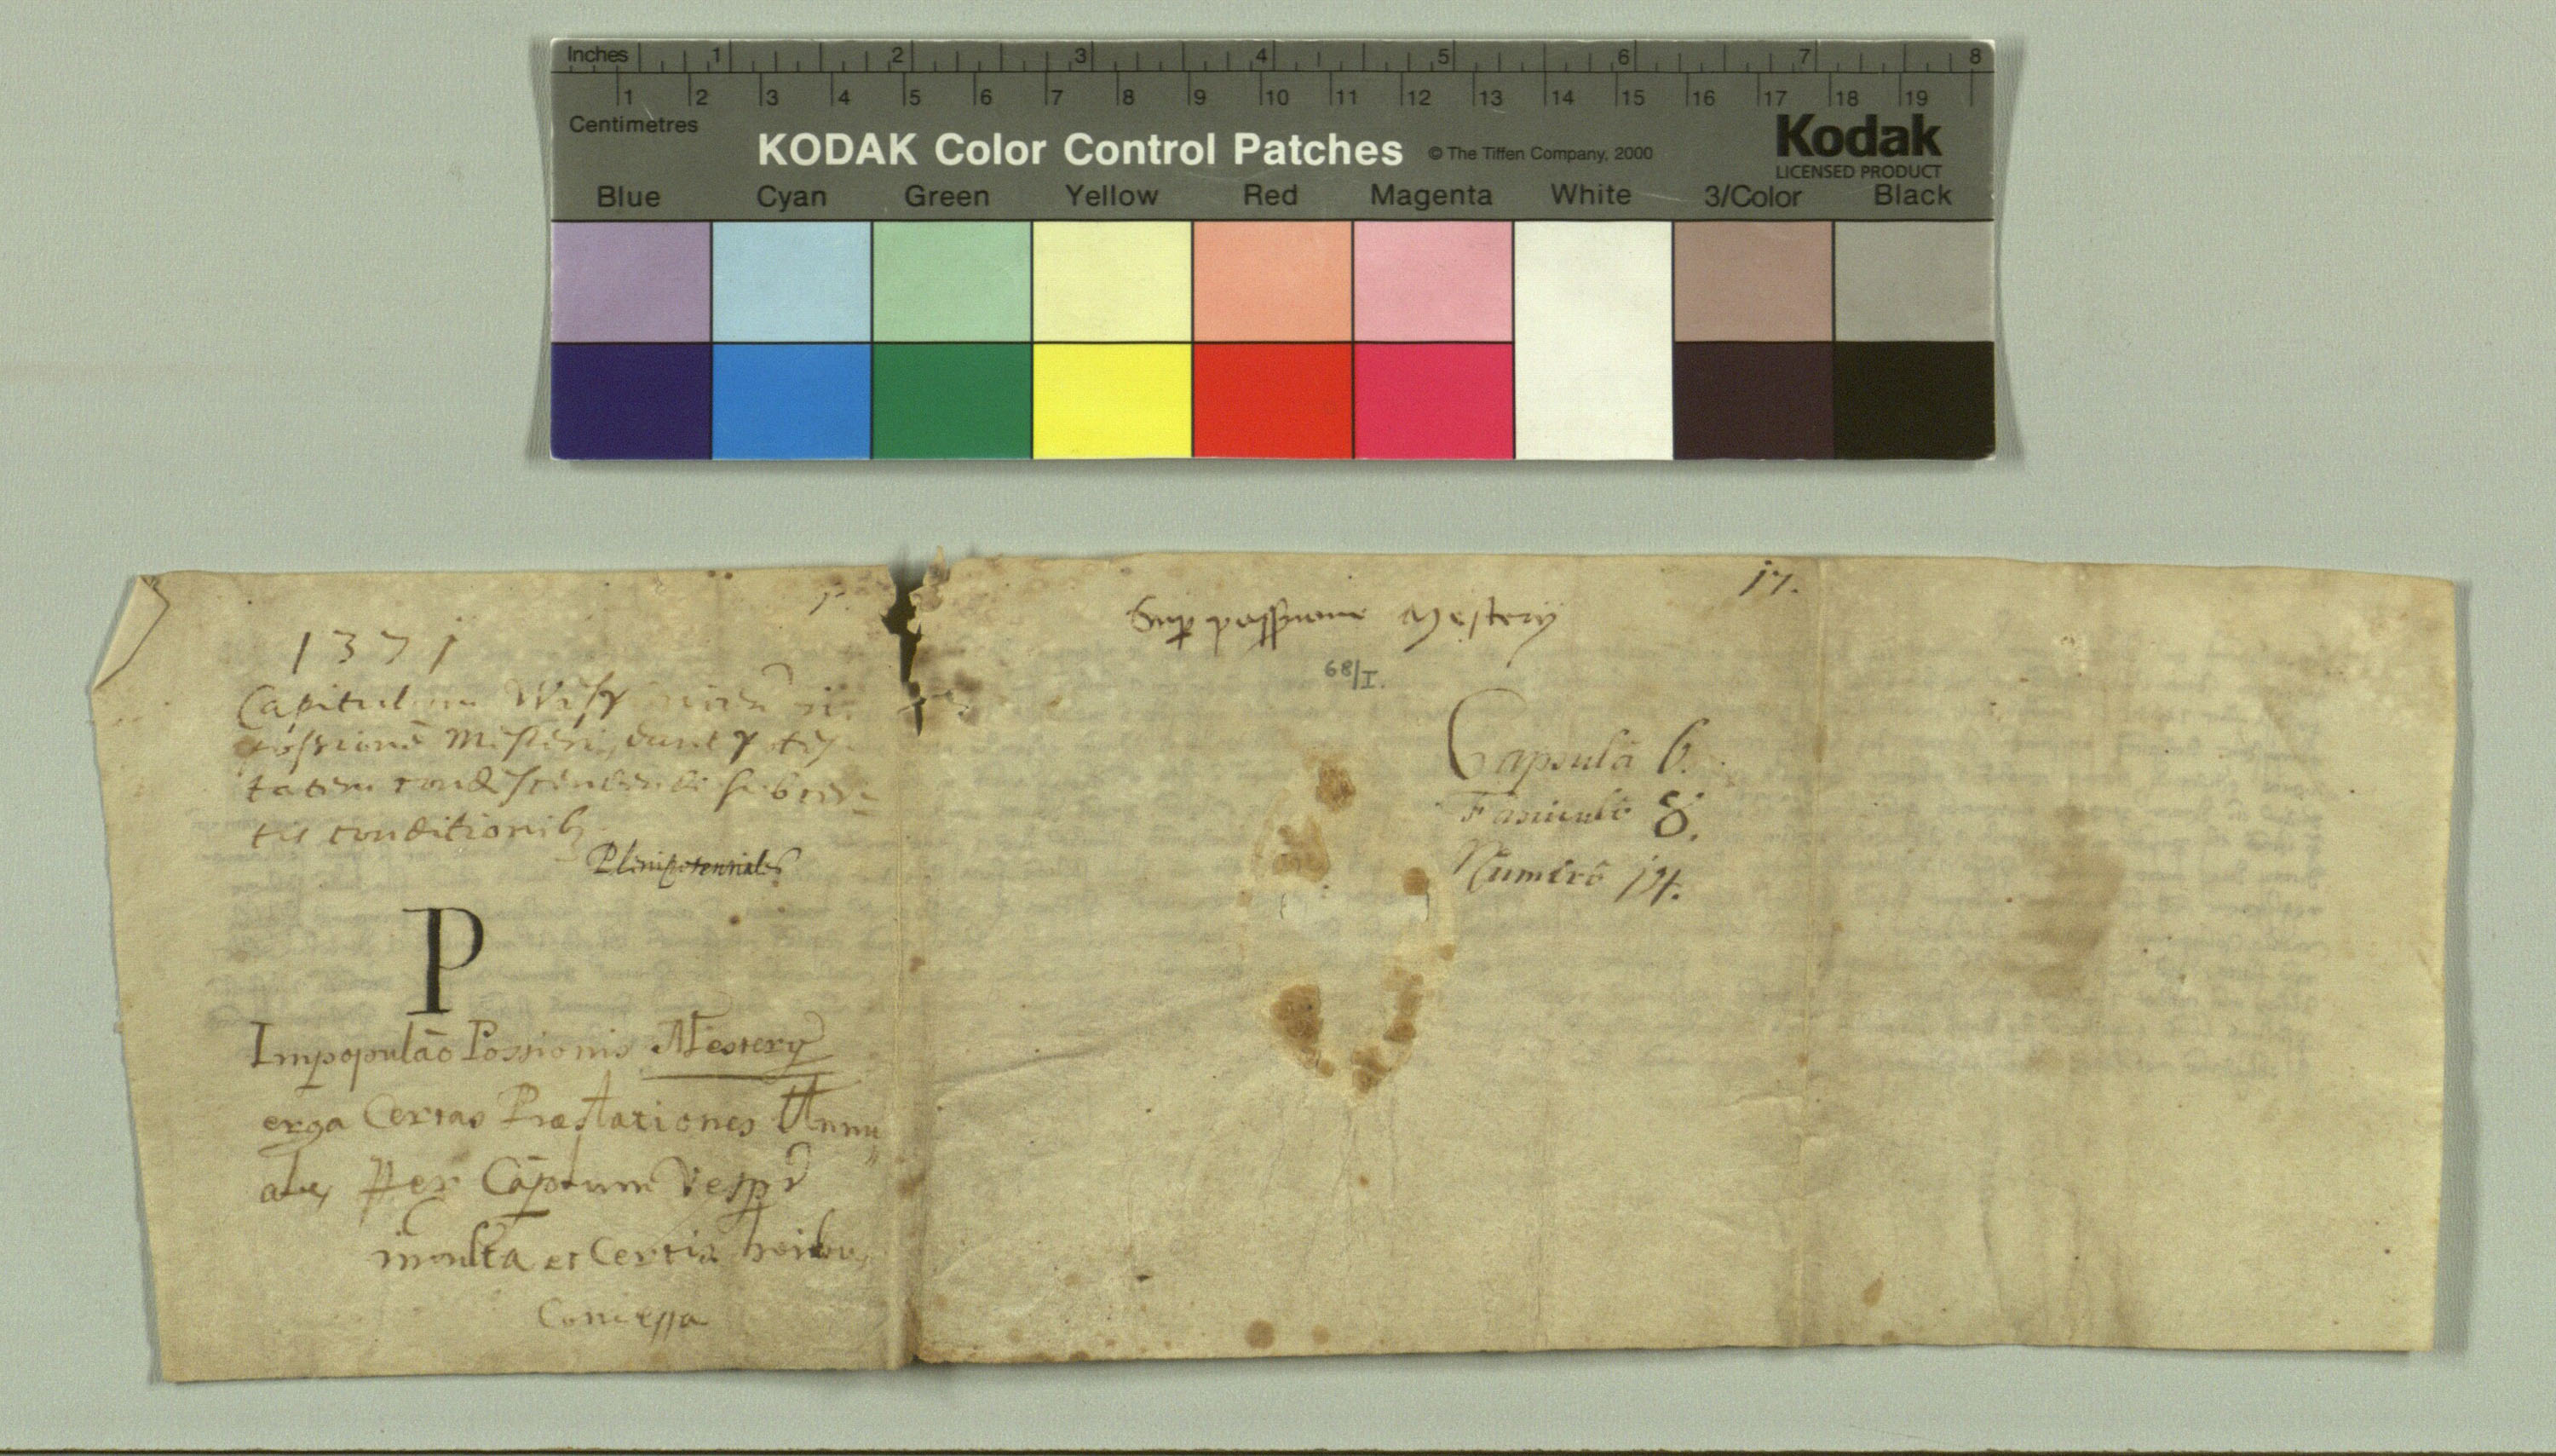 Inches 1 2 3 4 5 6 7 8
1 2 3 4 5 6 7 8 9 10 11 12 13 14 15 16 17 18 19
Centimetres
KODAK Color Control Patches © The Tiffen Company, 2000
Kodak
LICENSED PRODUCT
Blue Cyan Green Yellow Red Magenta White 3/Color Black
17.
1371
Capitulum
possione Mesteri
tatem condescendendi sub cer=
tis conditionib
Plenipotentiales
P
Impopulão Possionis Mestery
erga Certas Præstationes Annu„
ales Per Cap̄tum Vesp
inculta et Certis
Concessa
Sup possessione Mestery
68/I.
Capsula 6.
Fasciculo 8.
Numero 14.